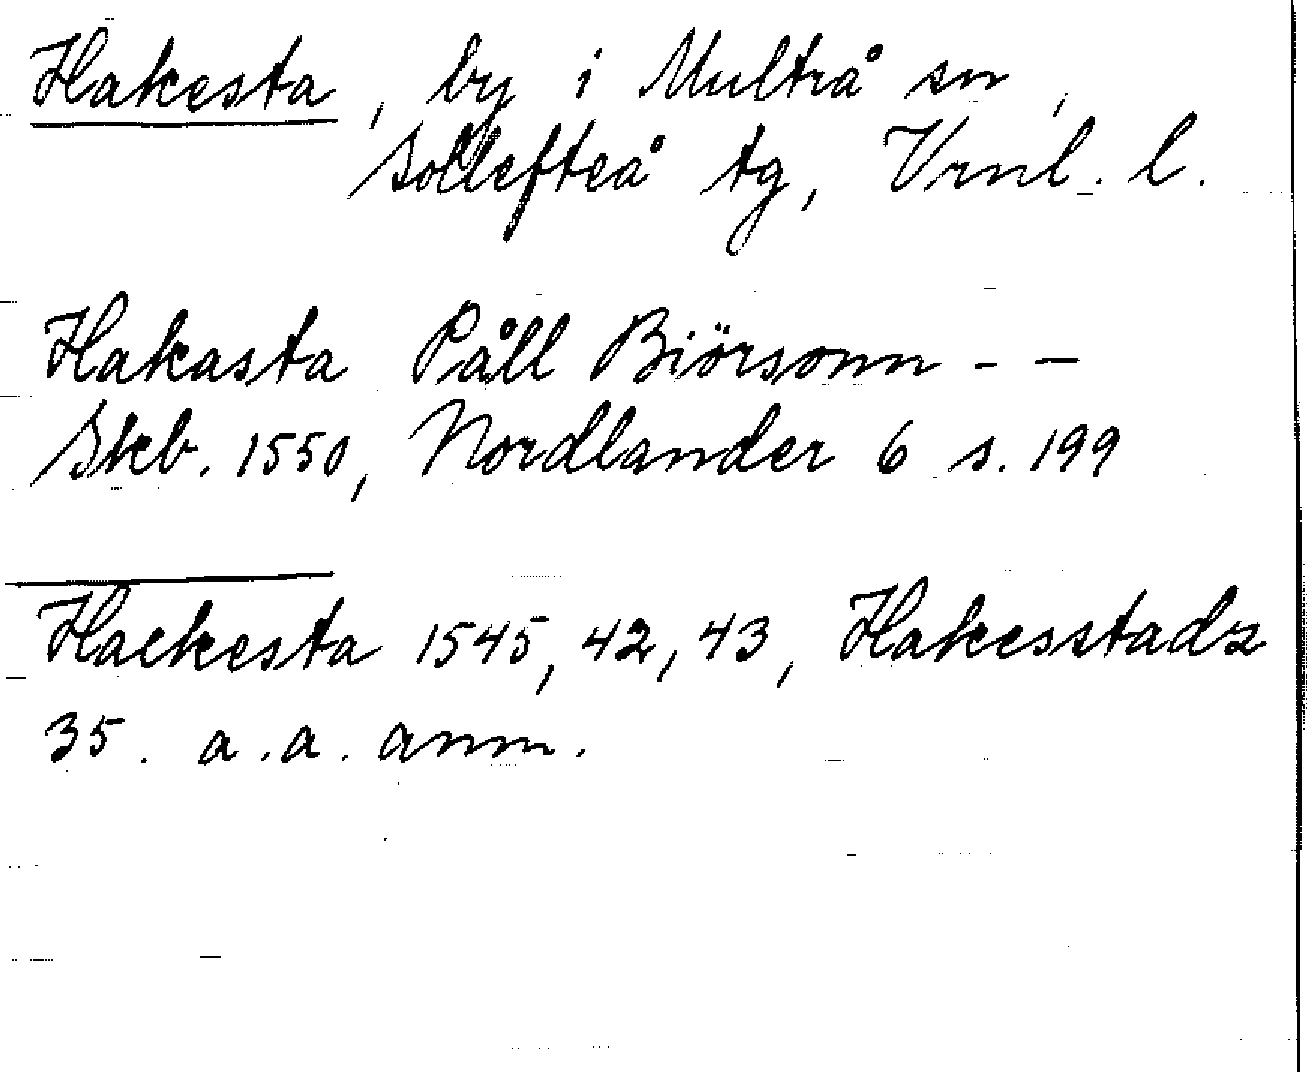 Hakesta, by i Multrå sn,
Sollefteå tg, Vrnl. l.
Hakasta Påll Biörsonn - –
Skb. 1550, Nordlander 6 s. 199
Hackesta 1545, 42, 43, Hakesstadz
35. a.a. anm.